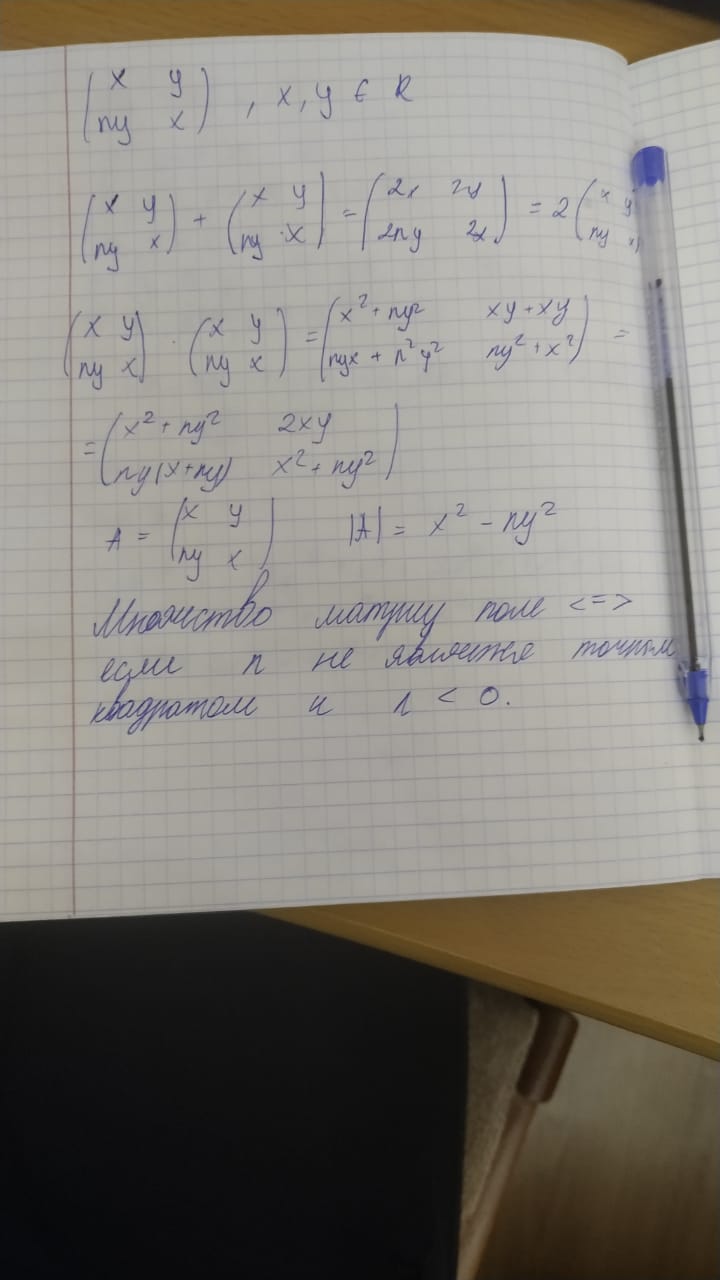 (x y
ny x) , x, y ∈ R
(x y
ny x) + (x y
ny x) = (2x 2y
2ny 2x) = 2 (x y
ny x)
(x y
ny x) · (x y
ny x) = (x² + ny² xy + xy
nyx + n²y² ny² + x²) =
= (x² + ny² 2xy
ny(x+ny) x² + ny²)
A = (x y
ny x) |A| = x² - ny²
Множество матриц поле <=>
если n не является точным
квадратом и n < 0.